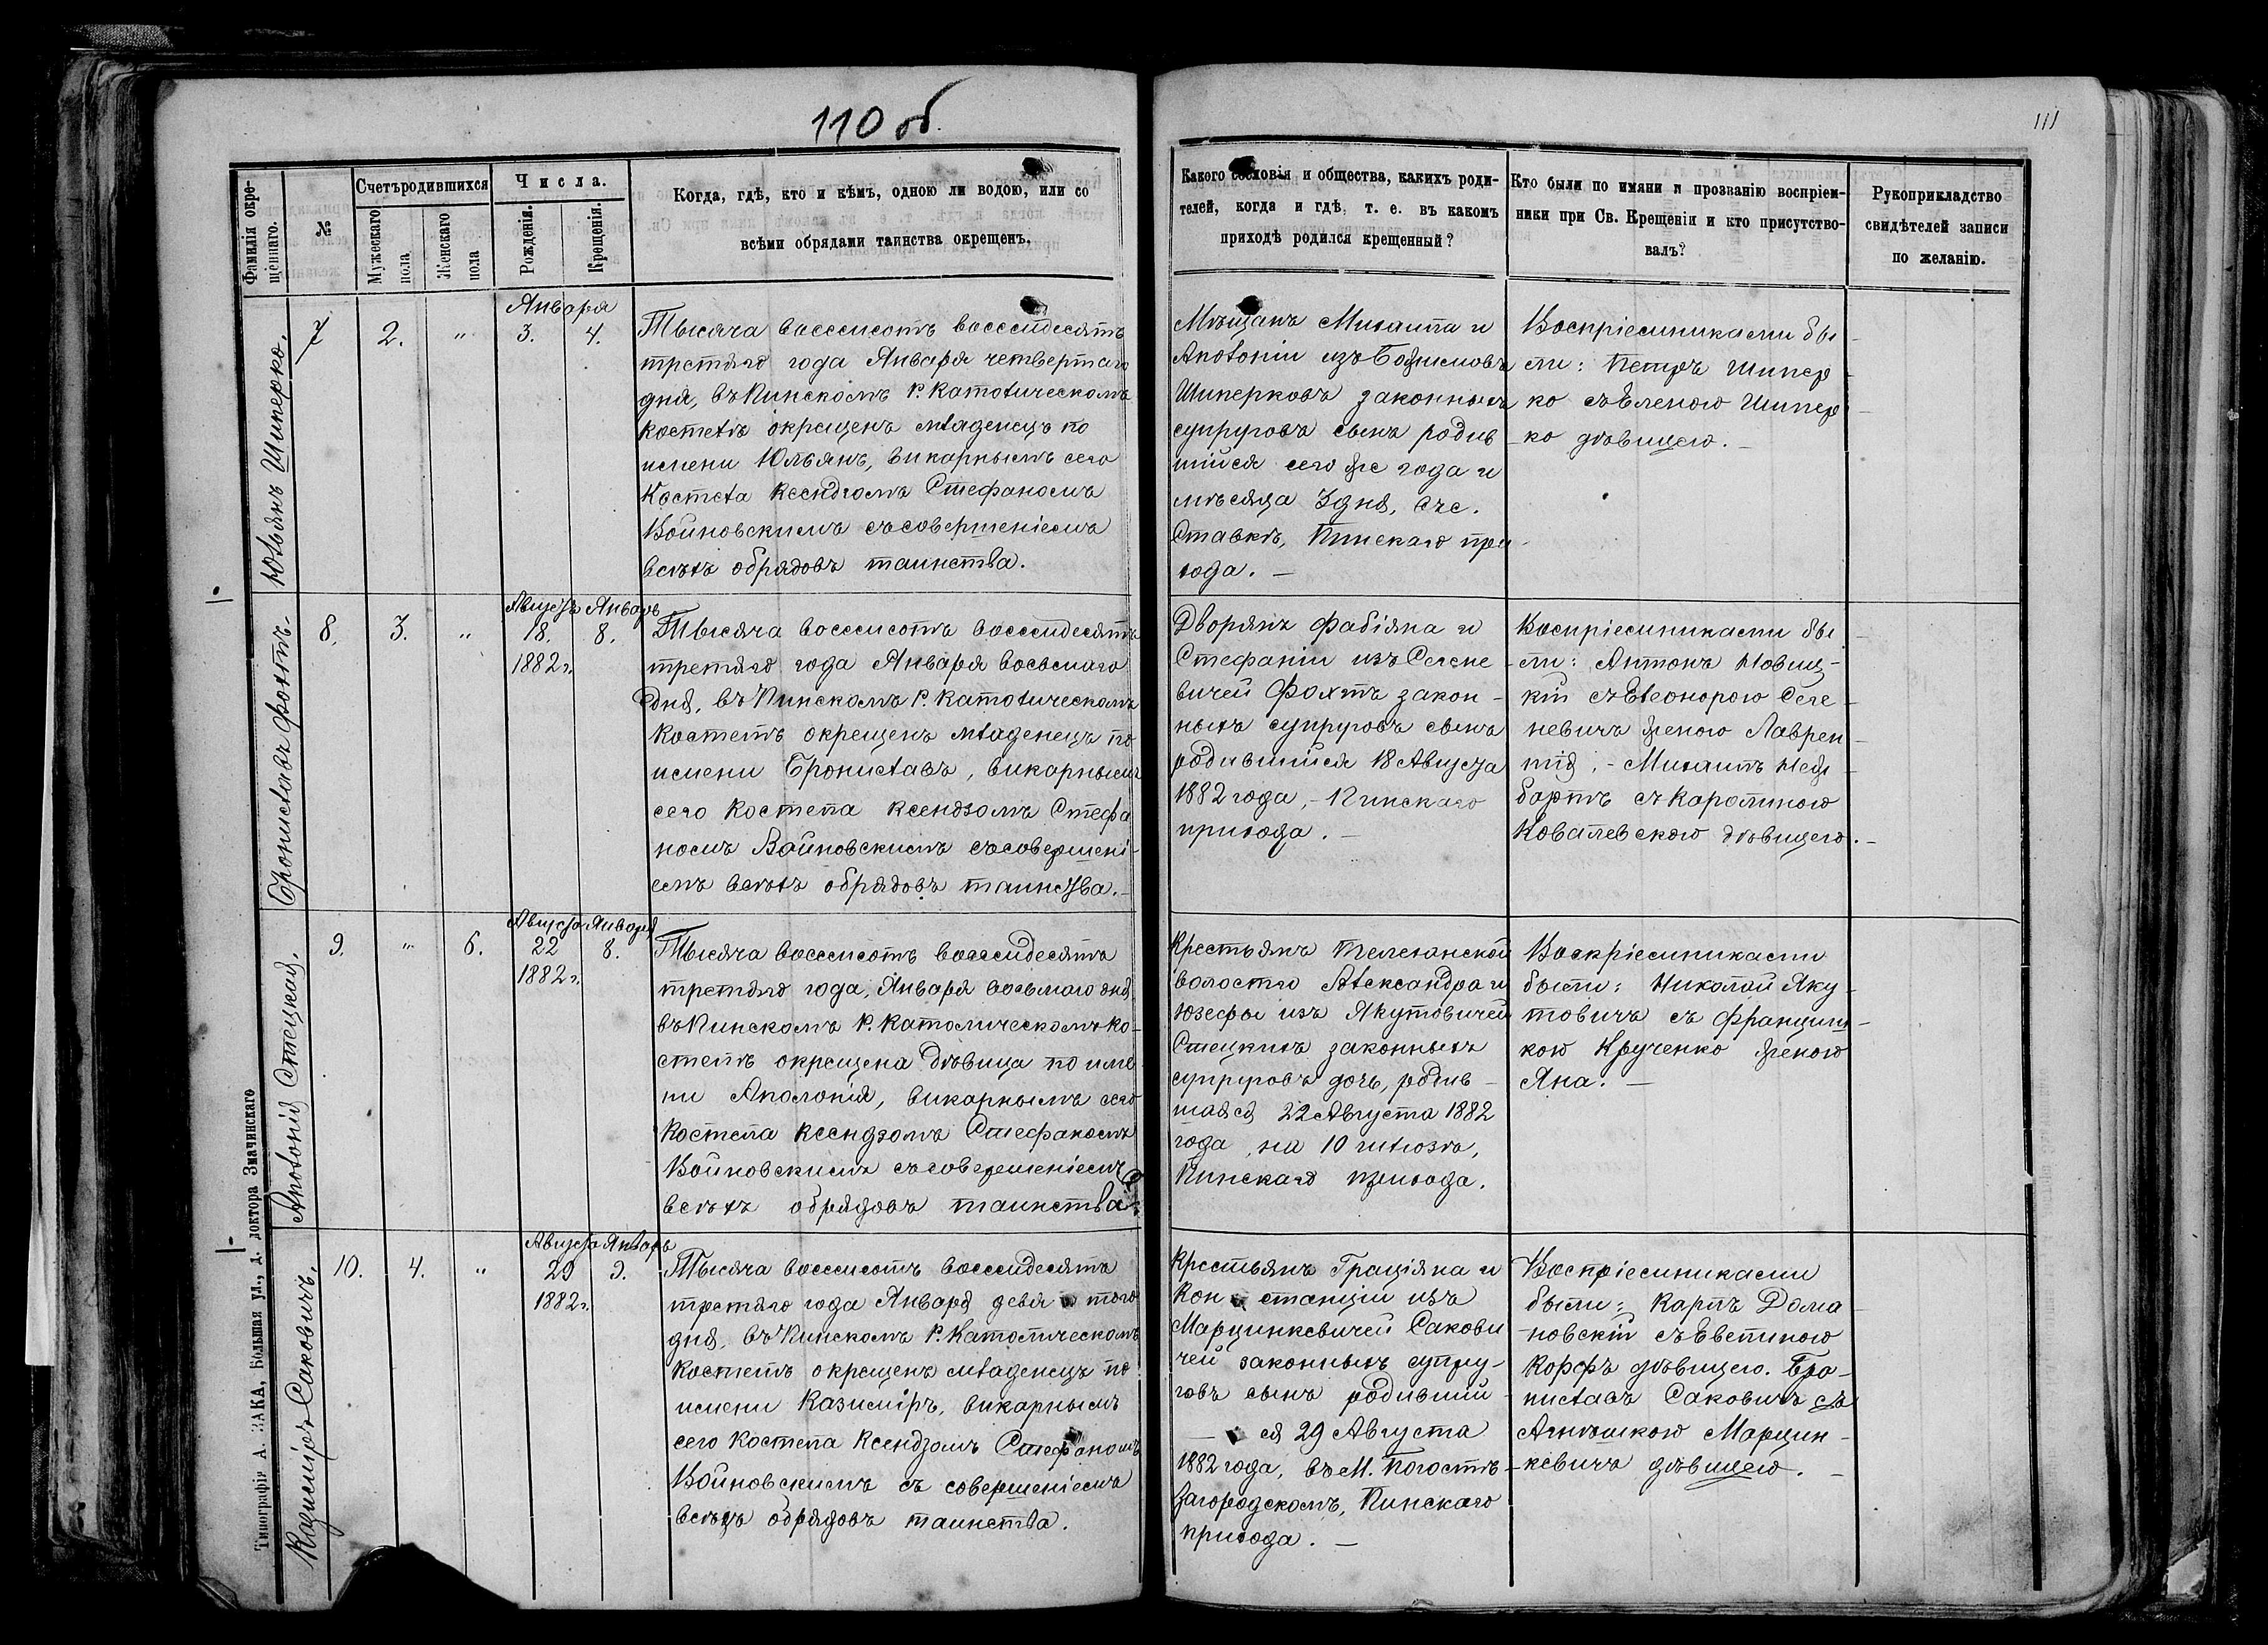 110 об.
111
Фамилія окре-
щённаго.
№
Счетъ родившихся
Мужескаго
пола
Женскаго
пола
Числа.
Рожденія.
Крещенія.
Когда, гдѣ, кто и кѣмъ, одною ли водою, или со
всѣми обрядами таинства окрещенъ.
Какого сословія и общества, какихъ роди-
телей, когда и гдѣ, т. е. въ какомъ
приходѣ родился крещенный?
Кто были по имяни и прозванію воспріем-
ники при Св. Крещеніи и кто присутство-
валъ?
Рукоприкладство
свидѣтелей записи
по желанію.
Юльянъ Шиперко.
7
2.
"
Января
3.
4.
Тысяча восемьсотъ восемьдесятъ
третяго года Января четвертаго
дня, въ Пинскомъ Р. Католическомъ
костелѣ окрещенъ младенецъ по
имени Юльянъ, викарнымъ сего
Костела Ксендзомъ Стефаномъ
Войновскимъ съ совершеніемъ
всѣхъ обрядовъ таинства.
Мѣщанъ Михаила и
Аполоніи изъ
Шиперковъ законныхъ
супруговъ сынъ родив
шійся сего же года и
мѣсяца 3 дня, въ с.
Ставкѣ, Пинскаго при
хода. —
Воспріемниками бы
ли: Петръ Шипер
ко съ Еленою Шипер
ко дѣвицею. —
Брониславъ Фохтъ.
8.
3.
"
Августа Январь
18.
8.
1882 г.
Тысяча восемьсотъ восемьдесятъ
третяго года Января восьмаго
дня, въ Пинскомъ Р. Католическомъ
Костелѣ окрещенъ младенецъ по
имени Брониславъ, викарнымъ
сего Костела Ксендзомъ Стефа
номъ Войновскимъ съ совершені-
емъ всѣхъ обрядовъ таинства. —
Дворянъ Фабіяна и
Стефаніи изъ Селене
вичей Фохтъ закон-
ныхъ супруговъ сынъ
родившійся 18 Августа
1882 года, - Пинскаго
прихода. —
Воспріемниками бы
ли: Антонъ Новиц-
кій съ Елеонорою Селе
невичъ женою Лаврен
тія, - Михаилъ
съ Каролиною
Ковалевскою дѣвицею. —
Аполонія Стецкая.
9.
"
6.
Августа Января
22
8.
1882 г.
Тысяча восемьсотъ восемьдесятъ
третяго года, Января восьмаго дня,
въ Пинскомъ Р. Католическомъ Ко-
стелѣ окрещена дѣвица по име
ни Аполонія, викарнымъ сего
Костела Ксендзомъ Стефаномъ
Войновскимъ съ совершеніемъ
всѣхъ обрядовъ таинства.
Крестьянъ Телеханской
волости Александра и
Юзефы изъ Якутовичей
Стецкихъ законныхъ
супруговъ дочь, родив-
шаяся 22 Августа 1882
года, на 10 шлюзѣ,
Пинскаго прихода.
Воспріемниками
были: Николай Яку-
товичъ съ Францыш-
кою Крученко женою
Яна. —
Казиміръ Саковичъ.
10.
4.
"
Августа Январь
29
9.
1882 г.
Тысяча восемьсотъ восемьдесятъ
третяго года Января девятого
дня, въ Пинскомъ Р. Католическомъ
Костелѣ окрещенъ младенецъ по
имени Казиміръ, викарнымъ
сего Костела Ксендзомъ Стефаномъ
Войновскимъ съ совершеніемъ
всѣхъ обрядовъ таинства.
Крестьянъ Граціяна и
Констанціи изъ
Марцинкевичей Сакови
чей законныхъ супру-
говъ сынъ родивший
ся 29 Августа
1882 года, въ М. Погостѣ-
Загородскомъ, Пинскаго
прихода. —
Воспріемниками
были: Карлъ Дома
новскій съ Евелиною
Корфъ дѣвицею. Бро-
ниславъ Саковичъ съ
Агнѣшкою Марцин-
кевичъ дѣвицею. —
Типографія А. ЗАКА, Большая ул., д. доктора Значинскаго